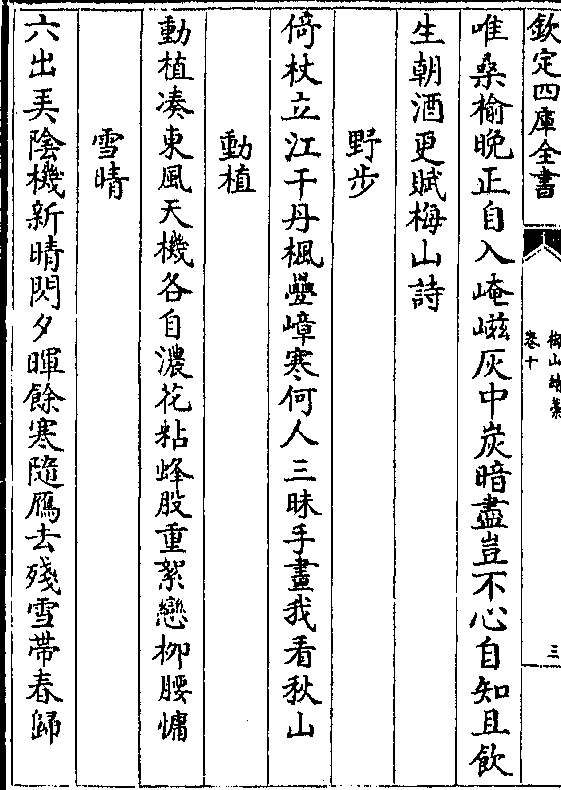 欽定四庫全書
梅山續藁
卷十
三
唯桑榆晚正自入崦嵫灰中炭暗盡豈不心自知且飲
生朝酒更賦梅山詩
野步
倚杖立江干丹楓疊嶂寒何人三昧手畫我看秋山
動植
動植凑東風天機各自濃花粘蜂股重絮戀柳腰慵
雪晴
六出弄陰機新晴閃夕暉餘寒隨鴈去殘雪帶春歸